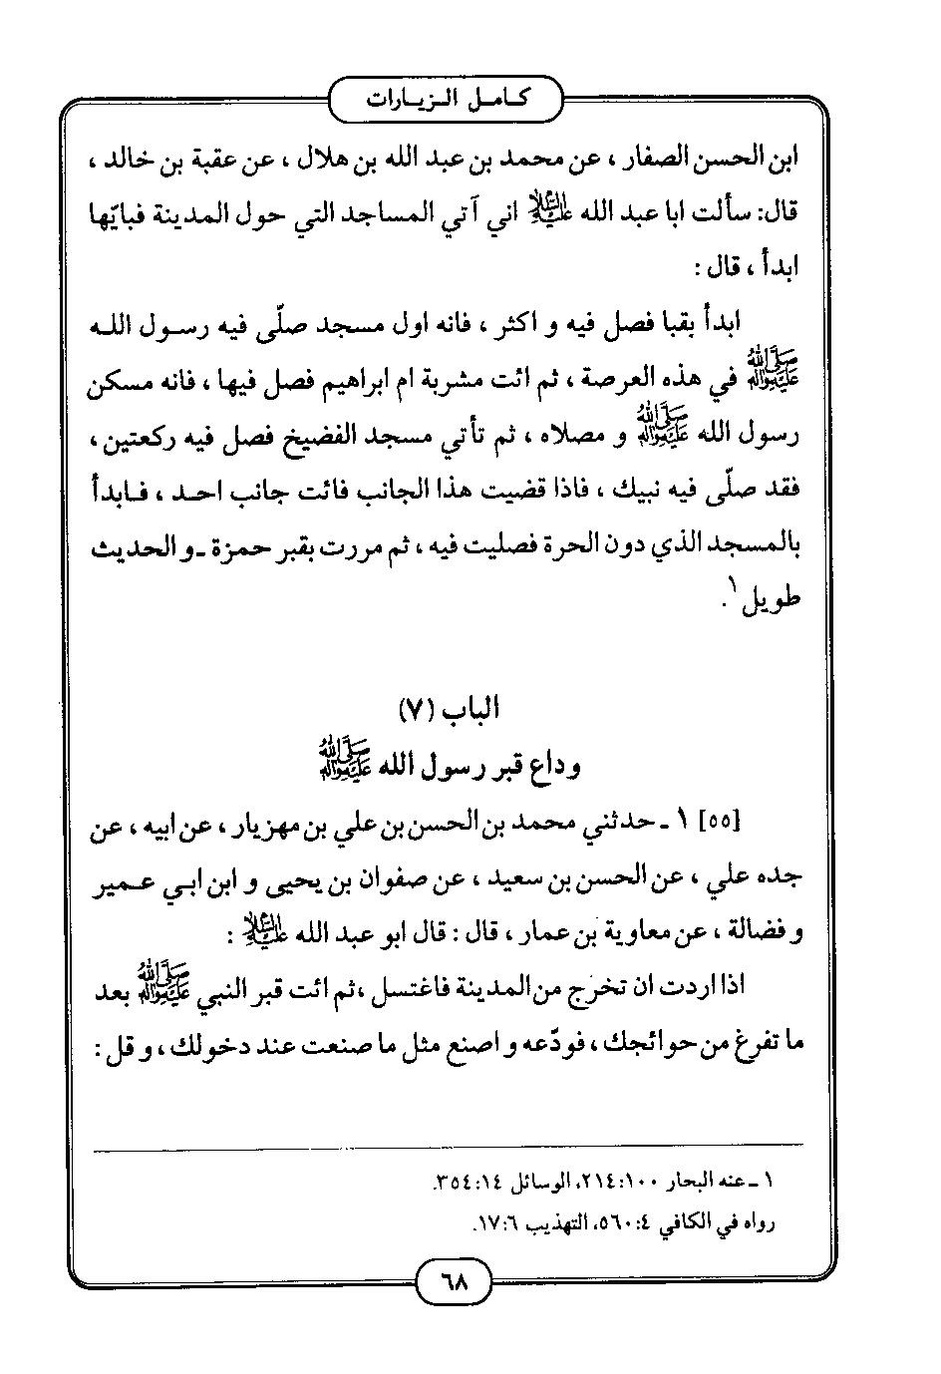 كامل الزيارات
ابن الحسن الصفار ، عن محمد بن عبد الله بن هلال ، عن عقبة بن خالد ،
قال: سألت ابا عبد الله عليه السلام اني آتي المساجد التي حول المدينة فبايّها
ابدأ ، قال :
ابدأ بقبا فصل فيه و اكثر ، فانه اول مسجد صلّى فيه رسول الله
صلى الله عليه وآله في هذه العرصة ، ثم ائت مشربة ام ابراهيم فصل فيها ، فانه مسكن
رسول الله صلى الله عليه وآله و مصلاه ، ثم تأتي مسجد الفضيخ فصل فيه ركعتين ،
فقد صلّى فيه نبيك ، فاذا قضيت هذا الجانب فائت جانب احد ، فابدأ
بالمسجد الذي دون الحرة فصليت فيه ، ثم مررت بقبر حمزة ـ و الحديث
طويل ١.
الباب (٧)
وداع قبر رسول الله صلى الله عليه وآله
[٥٥] ١ ـ حدثني محمد بن الحسن بن علي بن مهزيار ، عن ابيه ، عن
جده علي ، عن الحسن بن سعيد ، عن صفوان بن يحيى و ابن ابي عمير
و فضالة ، عن معاوية بن عمار ، قال : قال ابو عبد الله عليه السلام :
اذا اردت ان تخرج من المدينة فاغتسل ، ثم ائت قبر النبي صلى الله عليه وآله بعد
ما تفرغ من حوائجك ، فودّعه و اصنع مثل ما صنعت عند دخولك ، و قل :
١ ـ عنه البحار ١٠٠:٢١٤، الوسائل ١٤:٣٥٤.
رواه في الكافي ٤:٥٦٠، التهذيب ٦:١٧.
٦٨